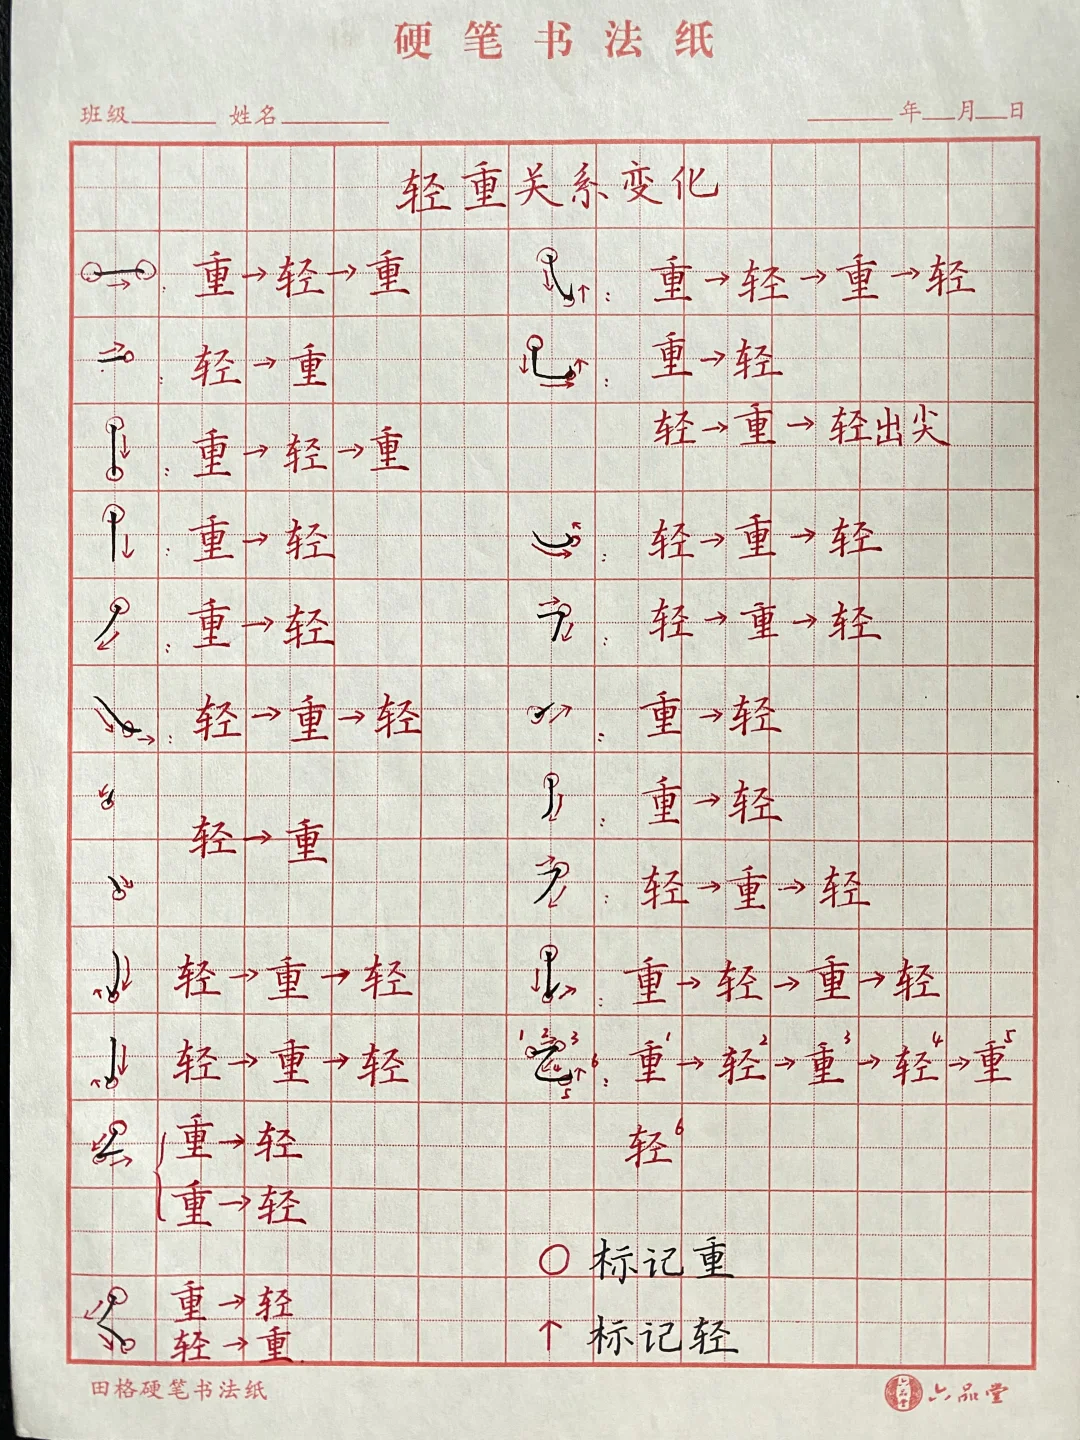 硬笔书法纸
班级 姓名 年 月 日
轻重关系变化
: 重→轻→重
: 轻→重
: 重→轻→重
: 重→轻
: 重→轻
: 轻→重→轻
轻→重
轻→重→轻
轻→重→轻
重→轻
重→轻
重→轻
轻→重
: 重→轻→重→轻
: 重→轻
轻→重→轻出尖
: 轻→重→轻
: 轻→重→轻
: 重→轻
: 重→轻
: 轻→重→轻
: 重→轻→重→轻
1 2 3 6 5 : 重1→轻2→重3→轻4→重5
轻6
○ 标记重
↑ 标记轻
田格硬笔书法纸
六品堂 六品堂